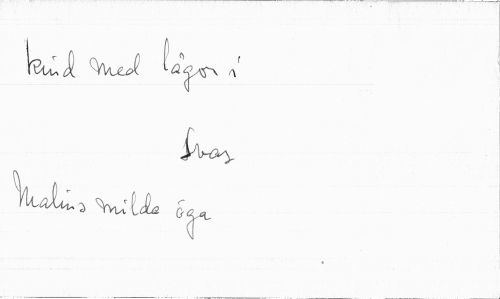 kind med lågor i
Svas
Malins milda öga